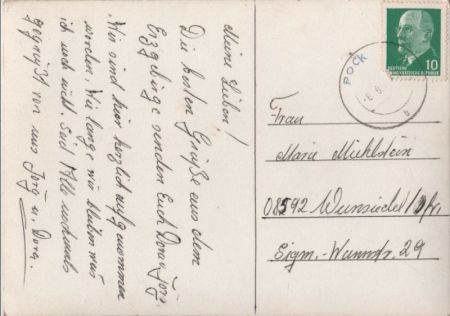 Meine Lieben!
Die besten Grüße aus dem
Erzgebirge senden Euch Dora u. Jörg.
Wir sind hier herzlich aufgenommen
worden. Wie lange wir bleiben weis
ich noch nicht. Seid Alle nochmals
gegrüßt von uns Jörg u. Dora.
POCK
DEUTSCHE
DEMOKRATISCHE REPUBLIK
10
Frau
Marie Mühlstein
08592 Wunsiedel/
Sigm.-Wannstr. 29